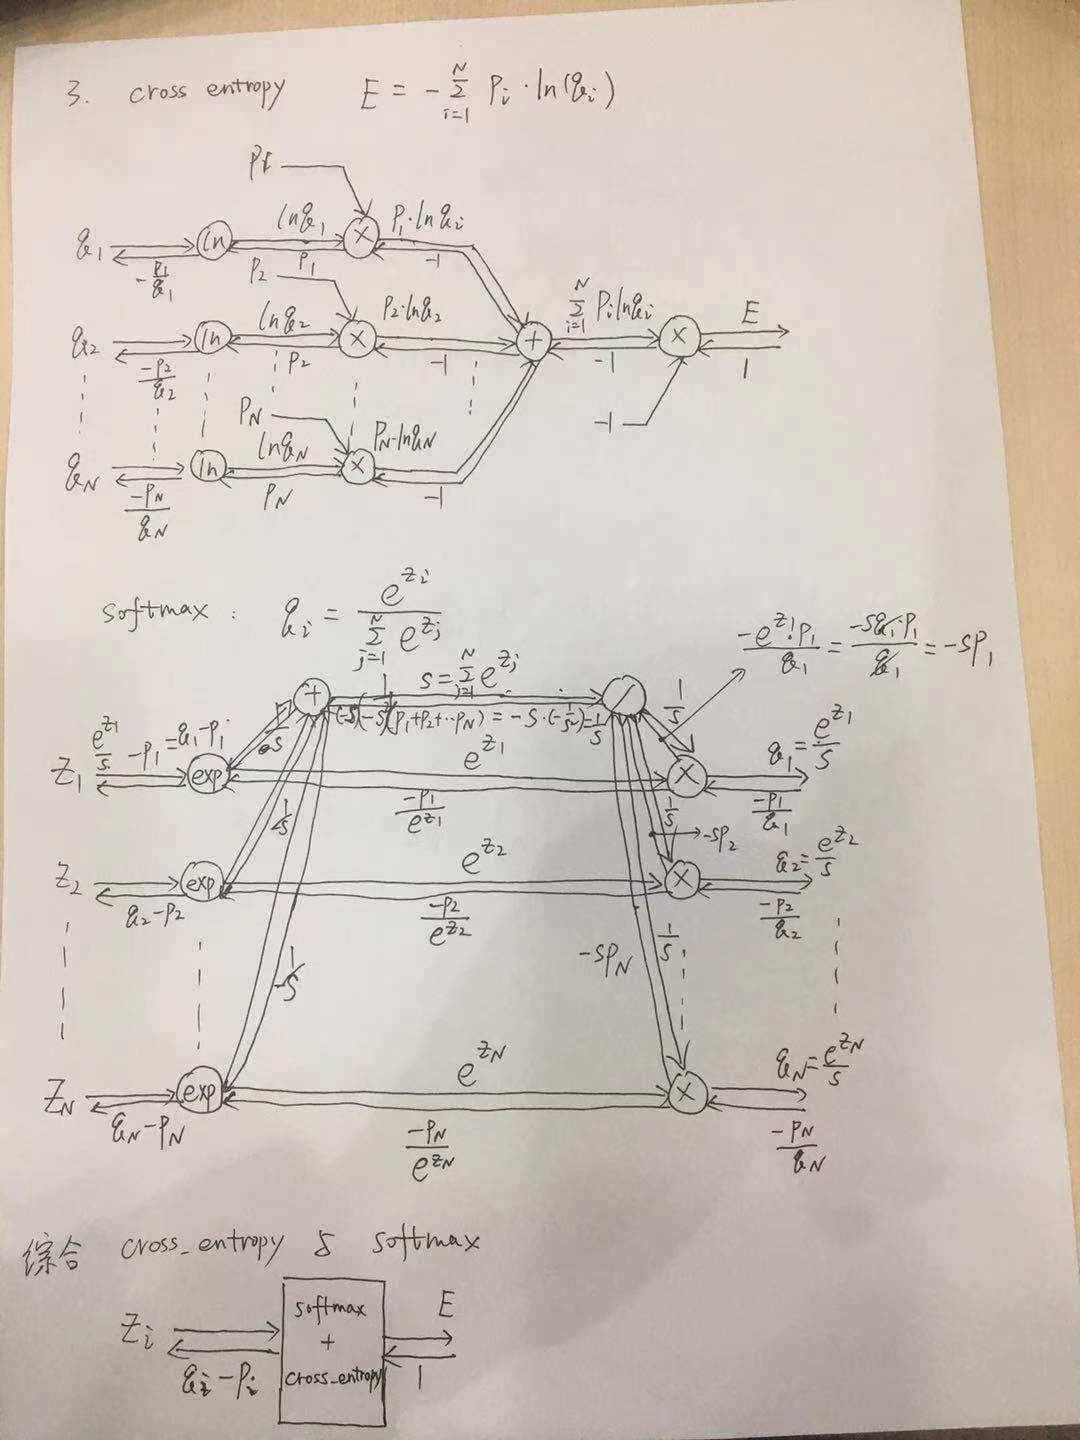 3. cross entropy E = -Σ_{i=1}^{N} P_i · ln(q_i)
ln q_1 P_1·ln q_i
q_1 ln × -1
-p_1/q_1 P_2 P_1
Σ_{i=1}^{N} P_i ln q_i E
ln q_2 P_2·ln q_2
q_2 ln × + ×
-p_2/q_2 P_2 -1 -1 1
P_N -1
ln q_N P_N·ln q_N
q_N ln ×
-P_N/q_N P_N -1
softmax: q_i = e^{z_i} / Σ_{j=1}^{N} e^{z_j}
-e^{z_1}·P_1/q_1 = -sq_1·P_1/q_1 = -sP_1
+ s = Σ_{j=1}^{N} e^{z_j} / 1/s
(-s)(P_1+P_2+··P_N) = -s·(-1/s²) = 1/s
z_1 e^{z_1}/s - P_1 = q_1-P_1 exp e^{z_1} × q_1 = e^{z_1}/s
-P_1/e^{z_1} -P_1/q_1
1/s 1/s -sP_2
z_2 exp e^{z_2} × q_2 = e^{z_2}/s
q_2-P_2 -P_2/e^{z_2} -P_2/q_2
1/s -sP_N 1/s
z_N exp e^{z_N} × q_N = e^{z_N}/s
q_N-P_N -P_N/e^{z_N} -P_N/q_N
综合 cross_entropy & softmax
softmax E
z_i +
q_i-P_i cross_entropy 1